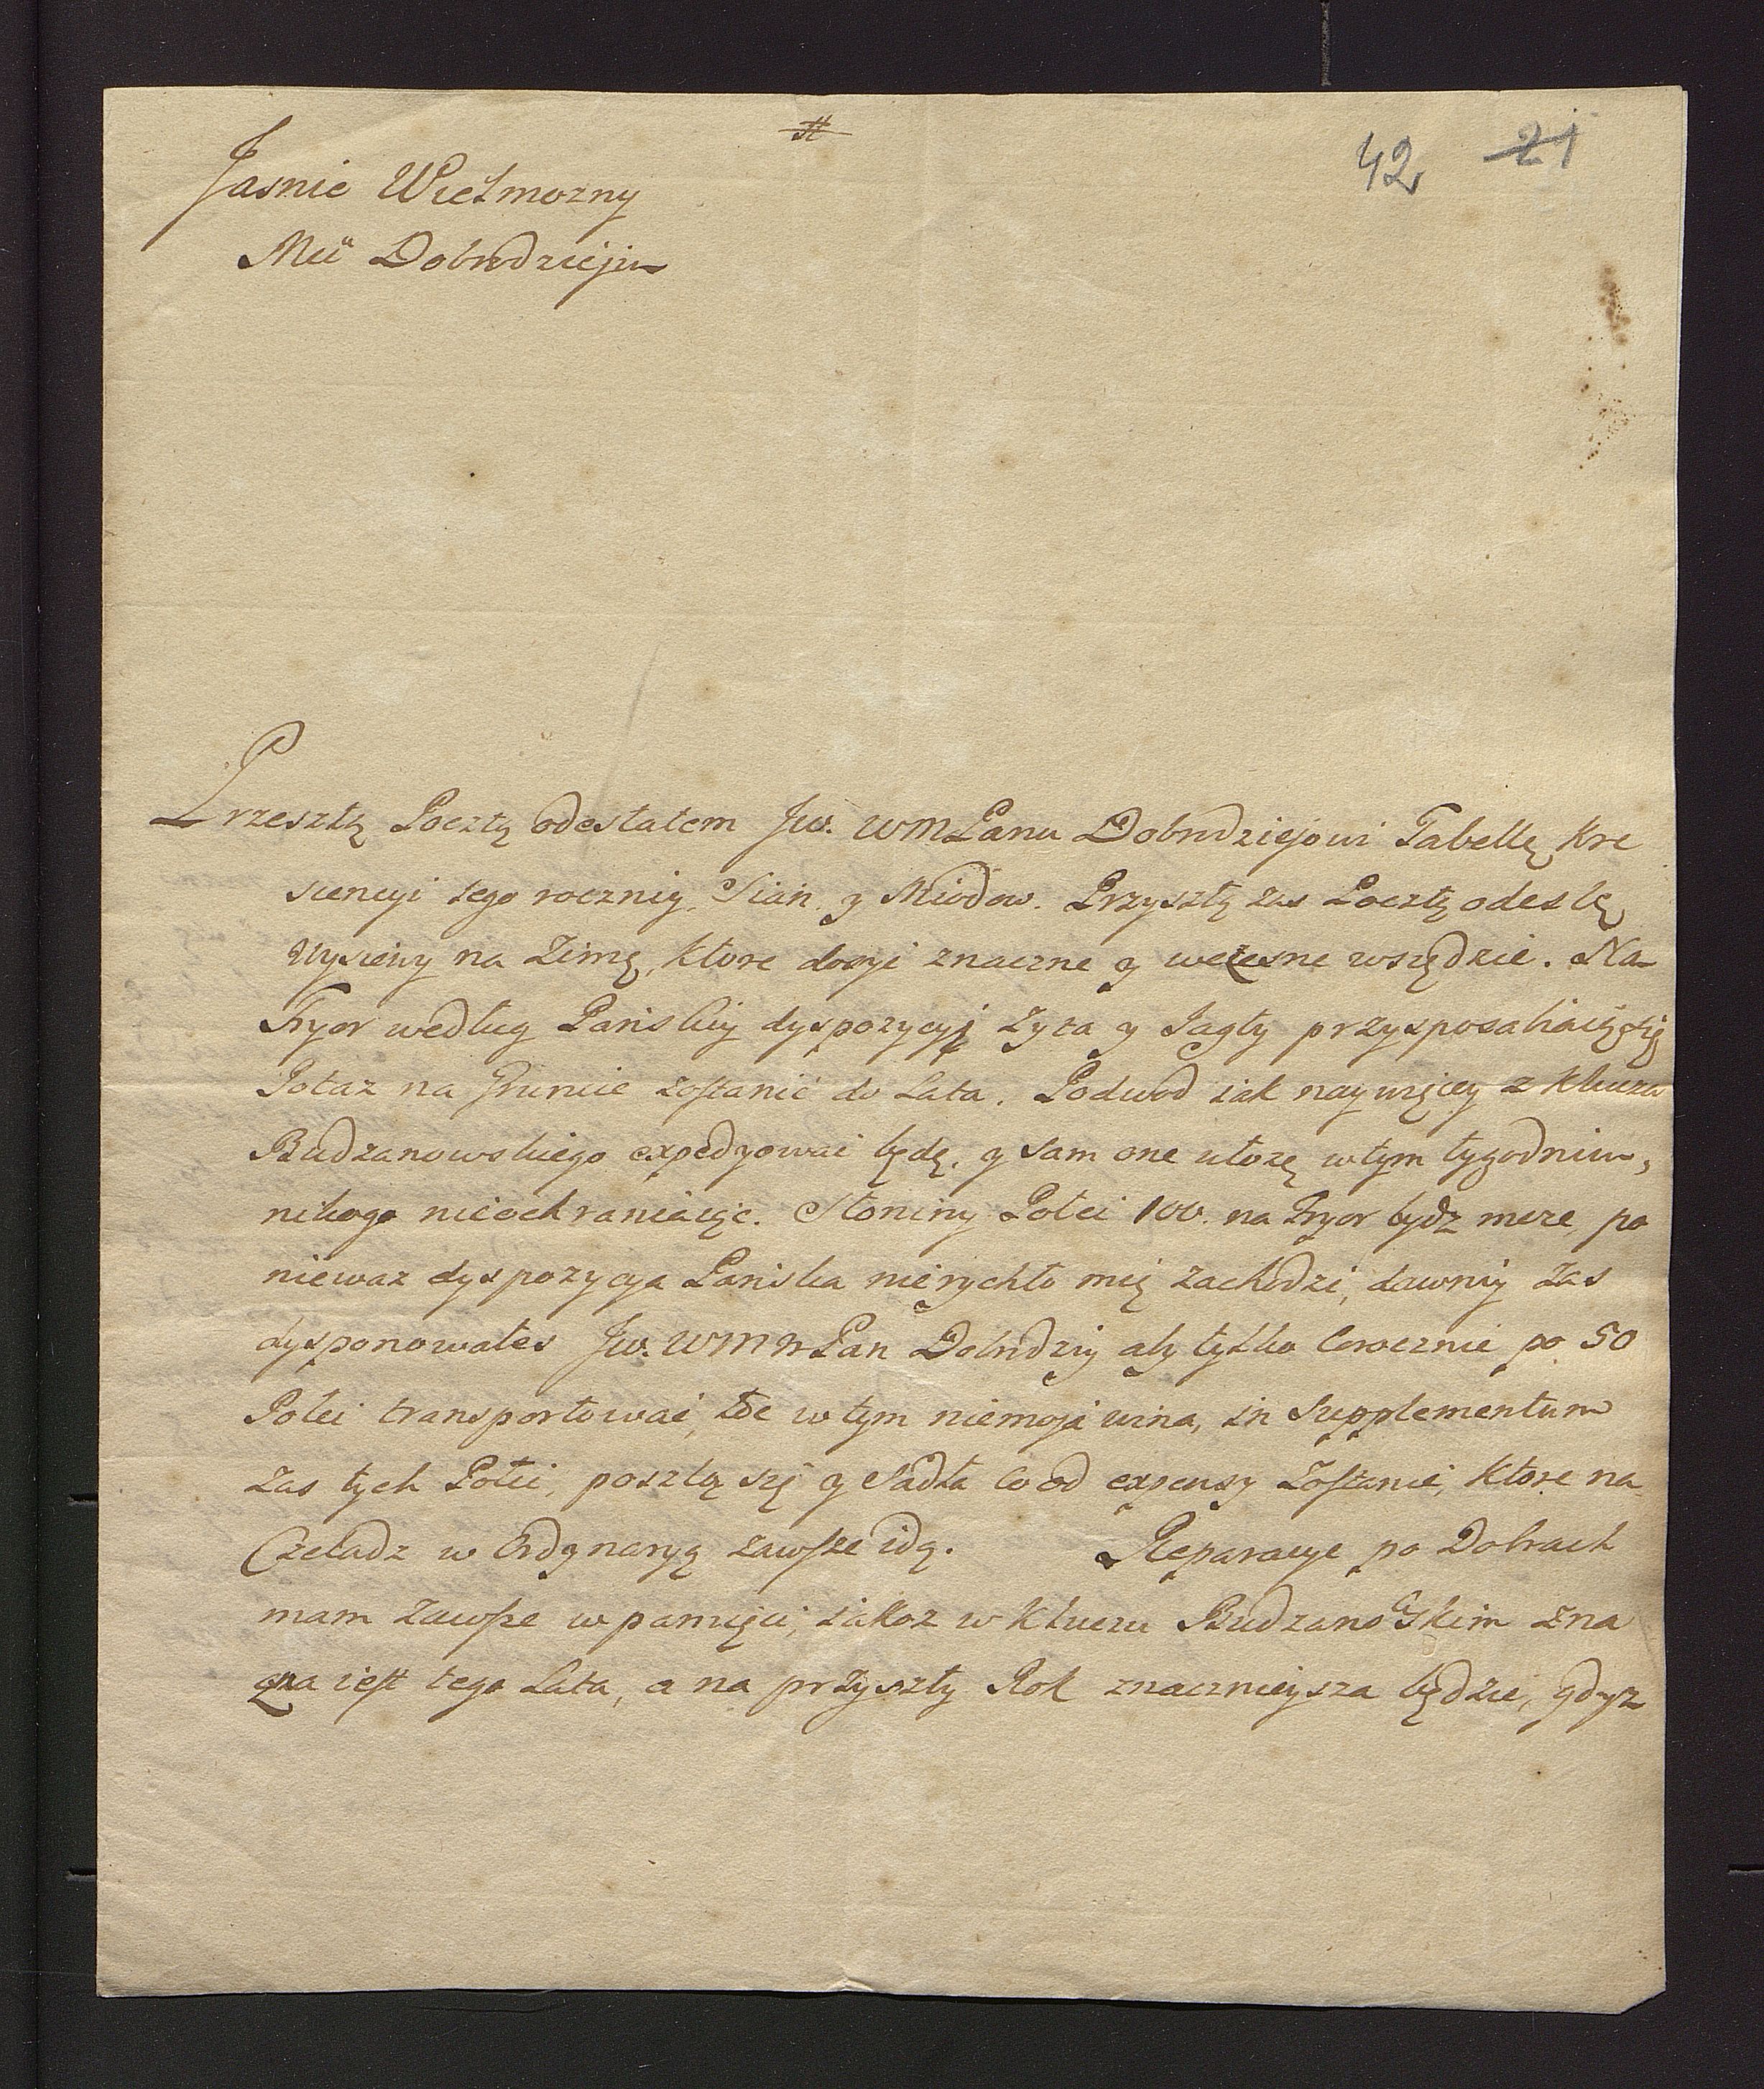 42 21
Jasnie Wielmozny
Mci Dobrodzieju
Przeszłą Pocztą odesłałem Jw. WMPanu Dobrodziejowi Tabellę Kre
scencyi tego roczniy, Sian, y Miodow. Przyszłą zas Pocztą odeslę
Wysiewy na Zimę, Ktore dosyi znaczne y wczesne wszędzie. Na
Fryor według Panskiey dyspozycyi Zyta y Jagły przysposabiaią się
Potaz na Gruncie zostanie do Lata. Podwod iak naywięcey z Klucza
Budzanowskiego expedyowai będę, y sam one ułozę w tym tygodniu,
nikogo nieochraniaiąc. Słoniny Połci 100. na Fryor bydz moze, po
niewaz dyspozycya Panska nierychło mię zachodzi, dawniy zas
dysponowałes Jw. WMM Pan Dobrodziy aby tylko Corocznie po 50
Połci transportowai, w tym niemoja wina, in Supplementum
zas tych Połci, poszlą się y Sadła co od expensy Zostanie, Ktore na
Czeladz w Ordynaryą zawsze idą. Reparacye po Dobrach
mam zawsze w pamięci, iakoz w Kluczu Budzanowskim zna
czna iest tego Lata, a na przyszły Rok znacznieysza będzie, gdyz